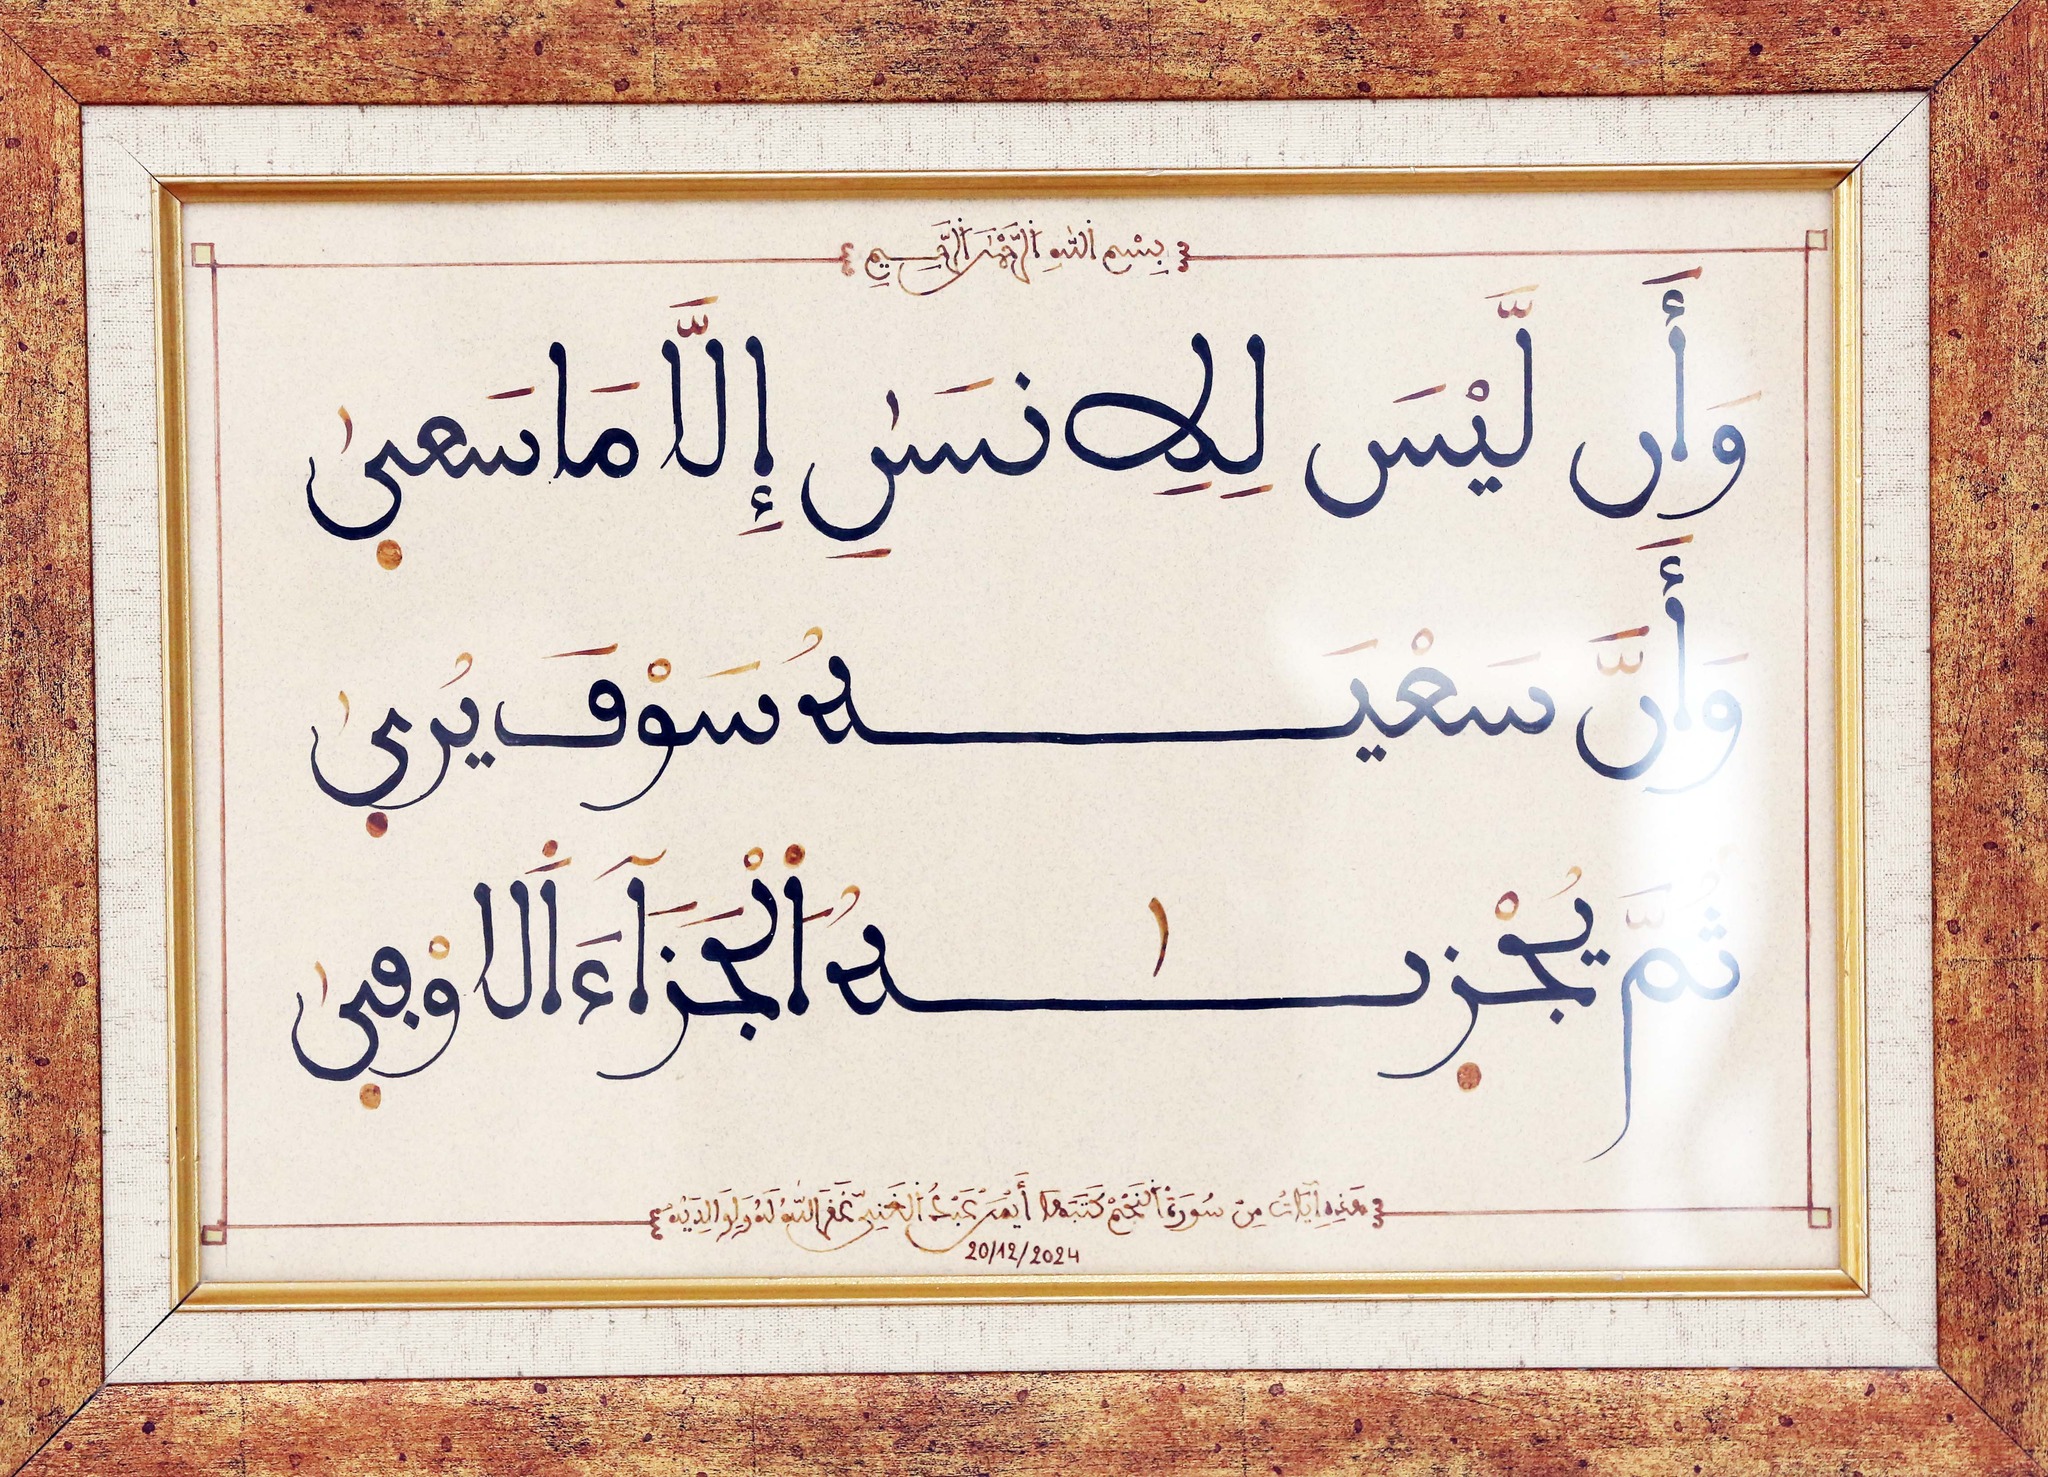 بِسْمِ اللهِ الرَّحْمَٰنِ الرَّحِيمِ
وَأَن لَّيْسَ لِلِانسَٰنِ إِلَّا مَا سَعىٰ
وَأَنَّ سَعْيَهُ سَوْفَ يُرىٰ
ثُمَّ يُجْزىٰهُ اَ۬لْجَزَآءَ اَ۬لَاوْفىٰ
هَذِهِ آيَاتٌ مِنْ سُورَةِ النَّجْمِ كَتَبَهَا أَيْمَن عَبْدُ الْغَنِيّ غَفَرَ اللهُ لَهُ وَلِوَالِدَيْهِ
20/12/2024